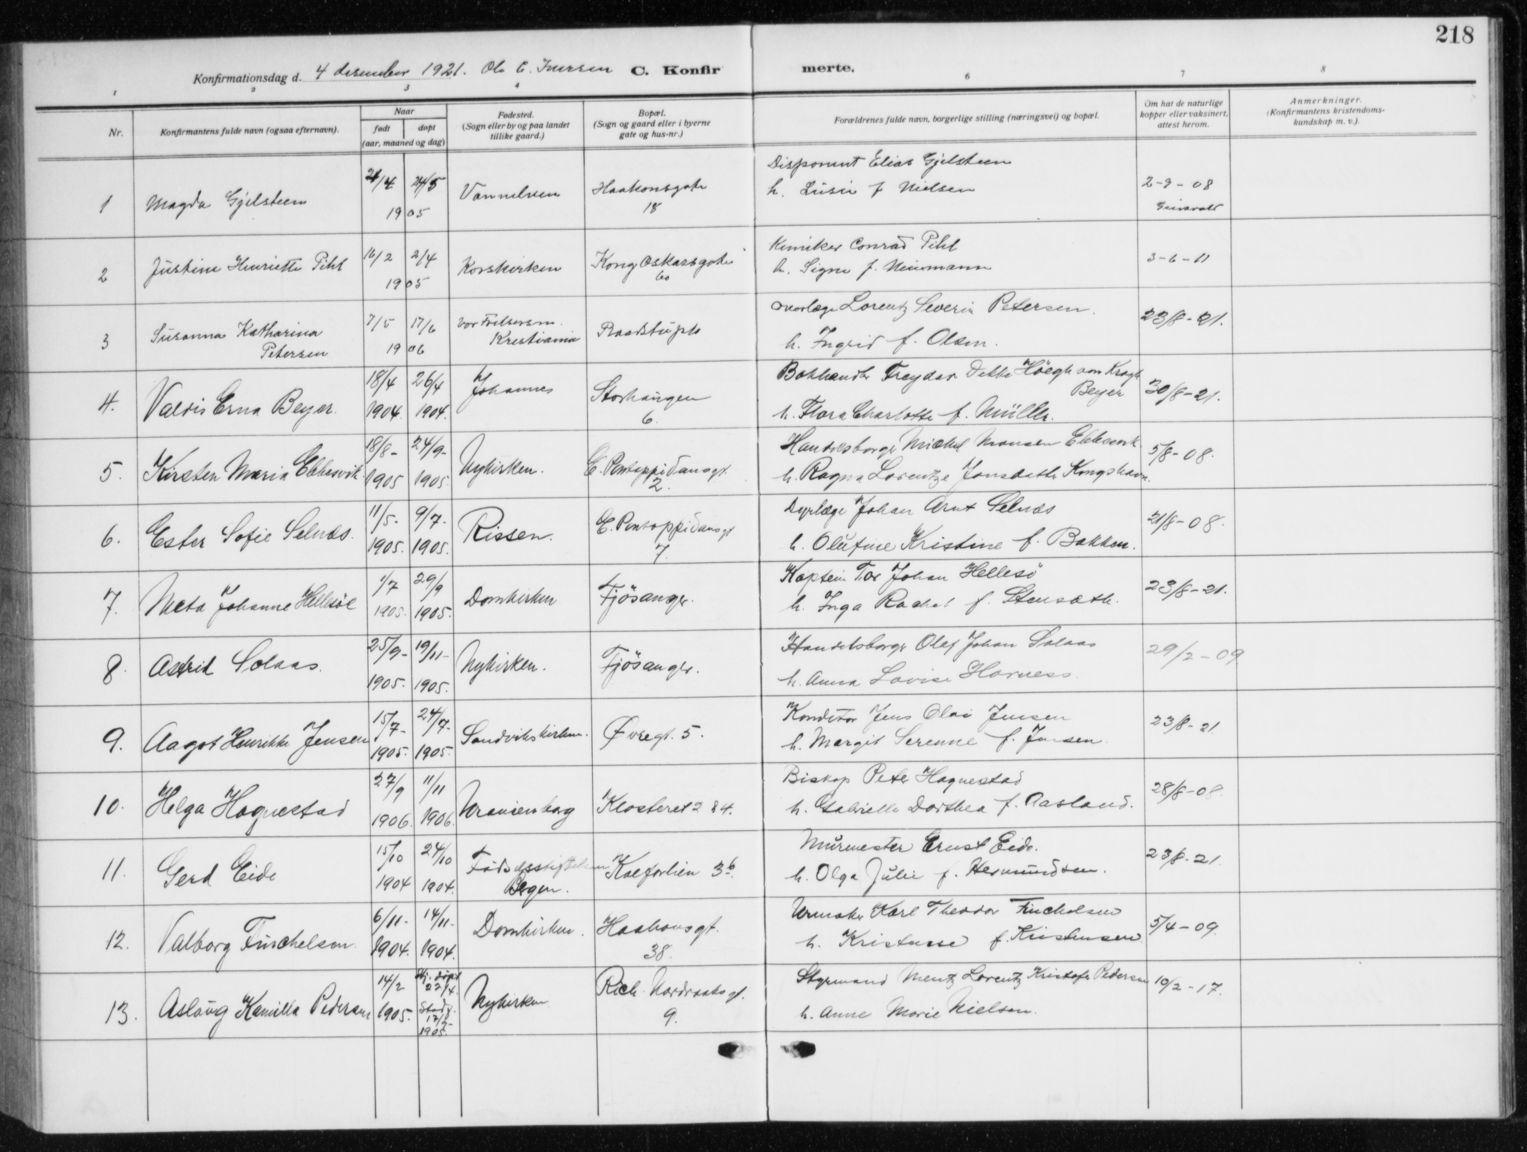 218
Konfirmationsdag d. 4 desember 1921. C. Konfirmerte.
1 2 3 4 6 7 8
Nr.
Konfirmantens fulde navn (ogsaa efternavn).
Naar
født døpt
(aar, maaned og dag)
Fødested.
(Sogn eller by og paa landet
tillike gaard.)
Bopæl.
(Sogn og gaard eller i byerne
gate og hus-nr.)
Forældrenes fulde navn, borgerlige stilling (næringsvei) og bopæl.
Om hat de naturlige
kopper eller vaksinert,
attest herom.
Anmerkninger.
(Konfirmantens kristendoms-
kundskap m. v.).
1 Magda Gjelsteen 24/5 1905 Haakonsgate 18
Disponent Elias Gjelsteen
h. f. Nielsen 2-9-08
2 Justine Henriette Pihl 16/2 2/4 1905 Korskirken Kong Oskarsgate 60
Kemiker Conrad Pihl
h. Signe f. 3-6-11
3 Susanna Katharina Petersen 7/5 17/6 1906 Vor Frelsersm. Kristiania
Overlæge Lorentz Severin Petersen.
h. Ingrid f. Olsen. 23/8-21.
4. Valdis Erna Beyer. 18/4 1904 26/4 1904. Johannes Storhaugen 6.
Beyer
h. Flora Charlotte f. Müller. 30/8-21.
5. Kirsten Maria Ebbesvik 18/8- 1905 24/9- 1905. Nykirken. C. Pontoppidansgt. 2.
Ebbesvik
h. Ragna Lorentze Jonsdatter Kongshavn. 5/8-08.
6. Ester Sofie Selnæs. 11/5- 1905. 9/7- 1905. Rissen. C. Pontoppidansgt 7.
Dyrlæge Johan Arnt Selnæs
h. Olufine Kristine f. Bakken. 21/8-08.
7. Meta Johanne Hellesöe 1/7 1905. 29/9 1905. Domkirken Fjösanger.
Kaptein Tor Johan Hellesö
h. Inga Rachel f. Stensæth. 23/8-21.
8. Astrid Solaas. 25/9- 1905. 19/11- 1905. Nykirken. Fjösanger.
Handelsborger Olaf Johan Solaas
h. Anna Lovise 29/2-09
9. Aagot Henrikke Jensen 15/7- 1905. 24/7- 1905. Sandvikskirken. Øvregt. 5.
Konditor Jens Olai Jensen
h. Margit Serenne f. Jensen. 23/8-21
10. Helga Hognestad 27/9 1906. 11/11 1906. Uranienborg Klosteret 2 & 4.
Biskop Peter Hognestad
h. Gabrielle Dorthea f. Aasland. 28/8-08.
11. Gerd Eide 15/10 1904 24/10 1904. Fødselsstiftelsen Bergen. Kalfarlien 3b.
Murmester Ernst Eide.
h. Olga Julie f. Hermundsen. 23/8-21.
12. Valborg Finchelsen. 6/11- 1904. 14/11- 1904. Domkirken. Haakonsgt. 38.
Urmaker Karl Theodor Finchelsen
h. f. Kristensen 5/4-09.
13. Aslaug Kamilla Pedersen 14/2 1905. Hj. døpt 22/4. Stadf. 1905. Nykirken Rich. Nordraaksgt. 9.
Styrmand Mentz Lorentz Kristofer Pedersen
h. Anne Marie Nielsen. 10/2-17.